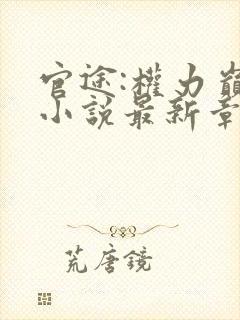 官途:權力巔
小説最新章
荒唐鏡